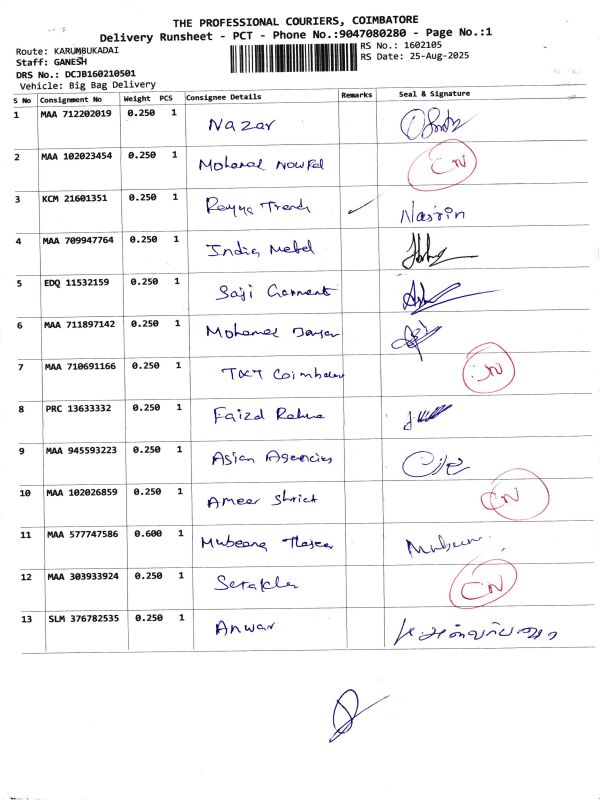 THE PROFESSIONAL COURIERS, COIMBATORE
Delivery Runsheet - PCT - Phone No.:9047080280 - Page No.:1
Route: KARUMBUKADAI
RS No.: 1602105
Staff: GANESH
RS Date: 25-Aug-2025
DRS No.: DCJB160210501
Vehicle: Big Bag Delivery
S No Consignment No Weight PCS Consignee Details Remarks Seal & Signature
1 MAA 712202019 0.250 1 Nazar
2 MAA 102023454 0.250 1 Mohamed Nowfel CN
3 KCM 21601351 0.250 1 Rayya Trends ✓ Nasrin
4 MAA 709947764 0.250 1 India Metal
5 EDQ 11532159 0.250 1 Saji Garment
6 MAA 711897142 0.250 1 Mohamed
7 MAA 710691166 0.250 1 Coimbatore
8 PRC 13633332 0.250 1 Faizal Rahma
9 MAA 945593223 0.250 1 Asian Agencies
10 MAA 102026859 0.250 1 Ameer CN
11 MAA 577747586 0.600 1 Mubeena
12 MAA 303933924 0.250 1 CN
13 SLM 376782535 0.250 1 Anwar